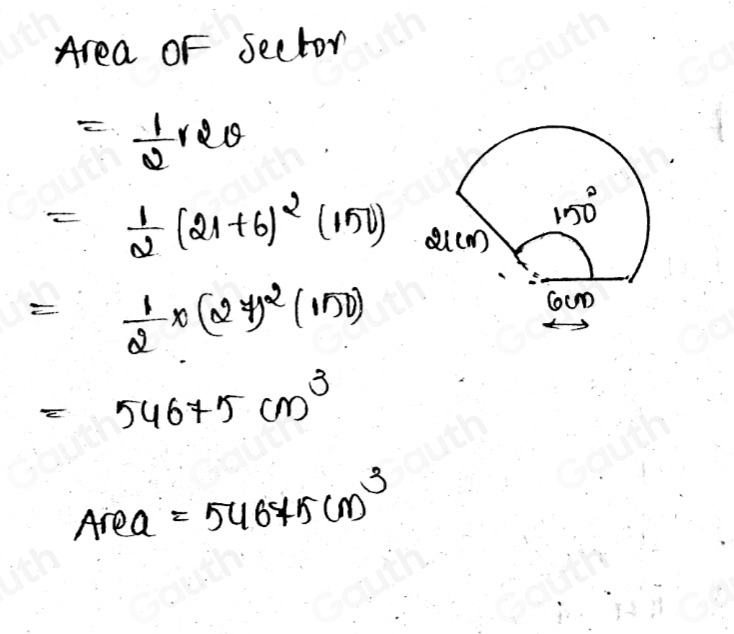 Area OF Sector
= 1/2 r2θ
= 1/2 (21+6)² (150)
= 1/2 × (27)² (150)
= 54675 cm³
Area = 54675 cm³
150°
21cm
6cm
Gauth